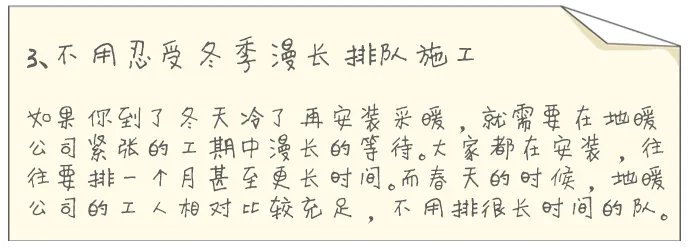 3、不用忍受冬季漫长排队施工
如果你到了冬天冷了再安装采暖，就需要在地暖
公司紧张的工期中漫长的等待。大家都在安装，往
往要排一个月甚至更长时间。而春天的时候，地暖
公司的工人相对比较充足，不用排很长时间的队。